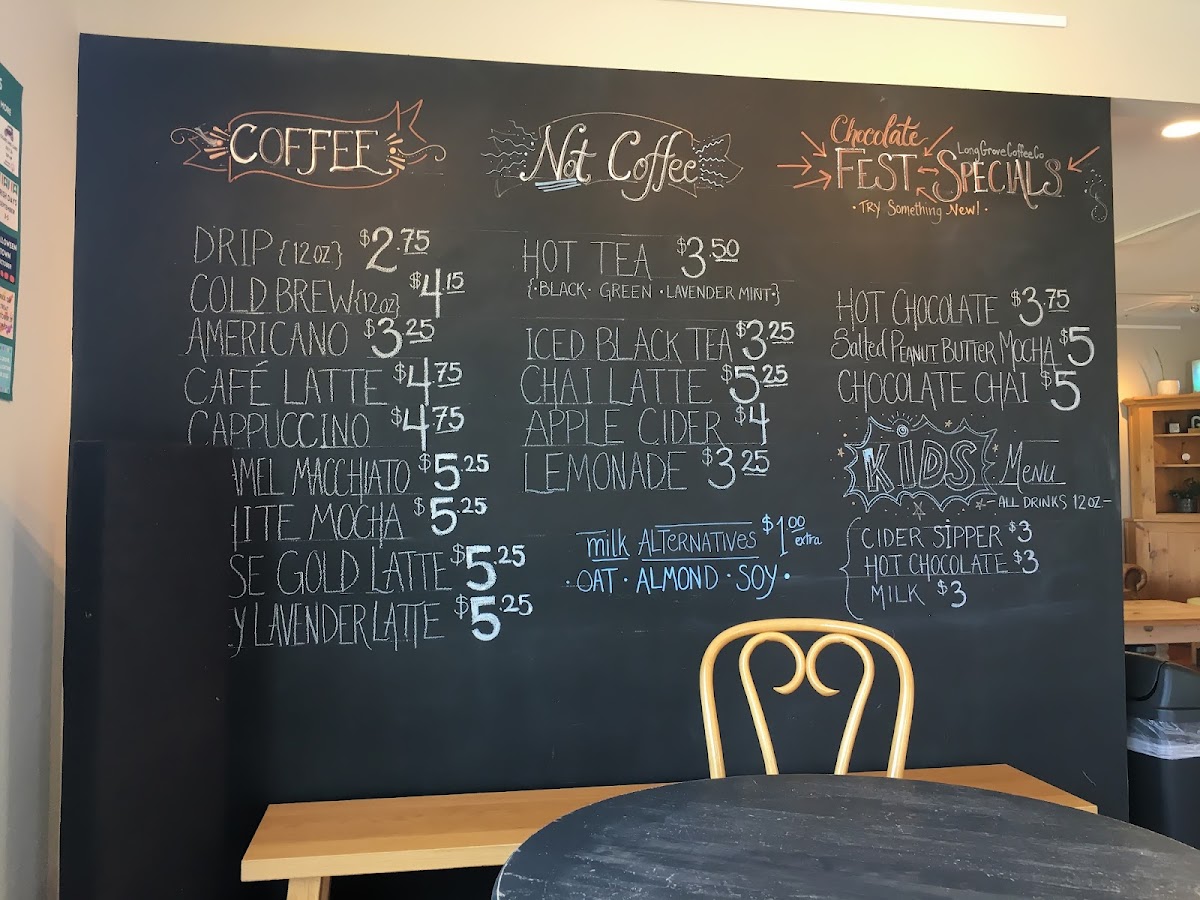 COFFEE
DRIP {12oz} $2.75
COLD BREW {12oz} $4.15
AMERICANO $3.25
CAFÉ LATTE $4.75
CAPPUCCINO $4.75
AMEL MACCHIATO $5.25
HITE MOCHA $5.25
SE GOLD LATTE $5.25
Y LAVENDER LATTE $5.25
Not Coffee
HOT TEA $3.50
{·BLACK· GREEN ·LAVENDER MINT·}
ICED BLACK TEA $3.25
CHAI LATTE $5.25
APPLE CIDER $4
LEMONADE $3.25
milk ALTERNATIVES $1.00 extra
·OAT · ALMOND · SOY·
Chocolate
Long Grove Coffee Co
FEST SPECIALS
·TRY Something New!·
HOT CHOCOLATE $3.75
Salted PEANUT BUTTER MOCHA $5
CHOCOLATE CHAI $5
KiDS Menu
-ALL DRINKS 12oz-
CIDER SiPPER $3
HOT CHOCOLATE $3
MILK $3